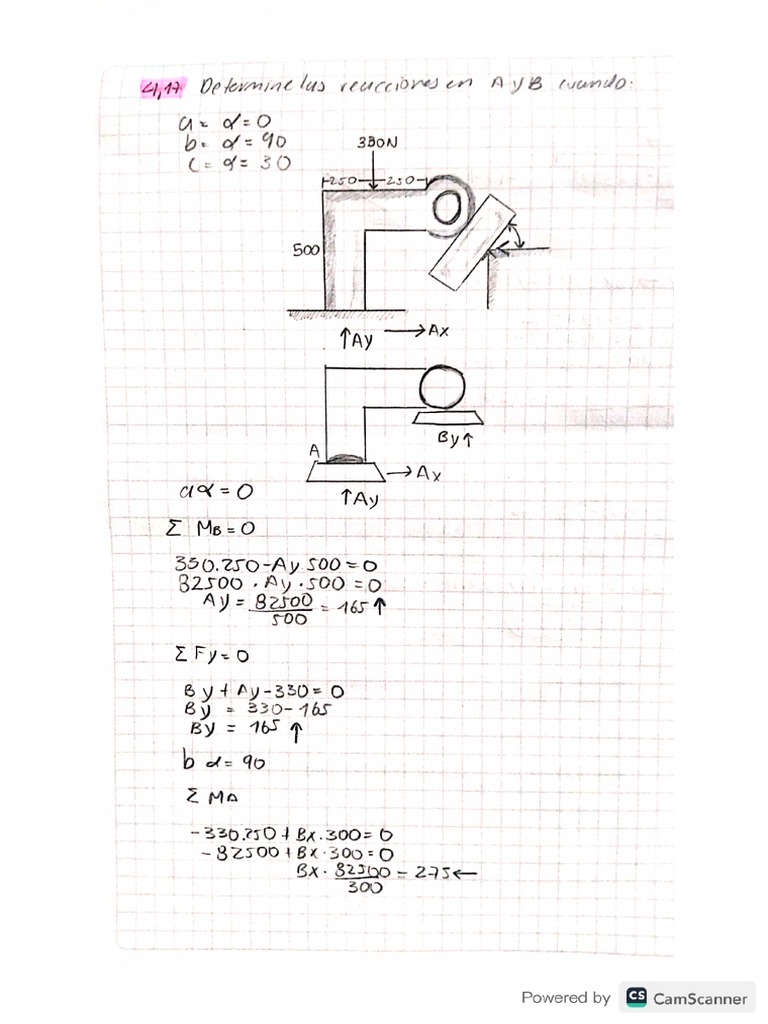 4,17 Determine las reacciones en A y B cuando:
a = α = 0
b = α = 90
c = α = 30
330N
250 250
500
↑Ay → Ax
By↑
A
→ Ax
↑Ay
a α = 0
Σ MB = 0
330.250 - Ay 500 = 0
82500 · Ay · 500 = 0
Ay = 82500/500 = 165 ↑
Σ Fy = 0
By + Ay - 330 = 0
By = 330 - 165
By = 165 ↑
b α = 90
Σ MA
-330.250 + Bx · 300 = 0
-82500 + Bx · 300 = 0
Bx · 82500/300 = 275 ←
Powered by CS CamScanner